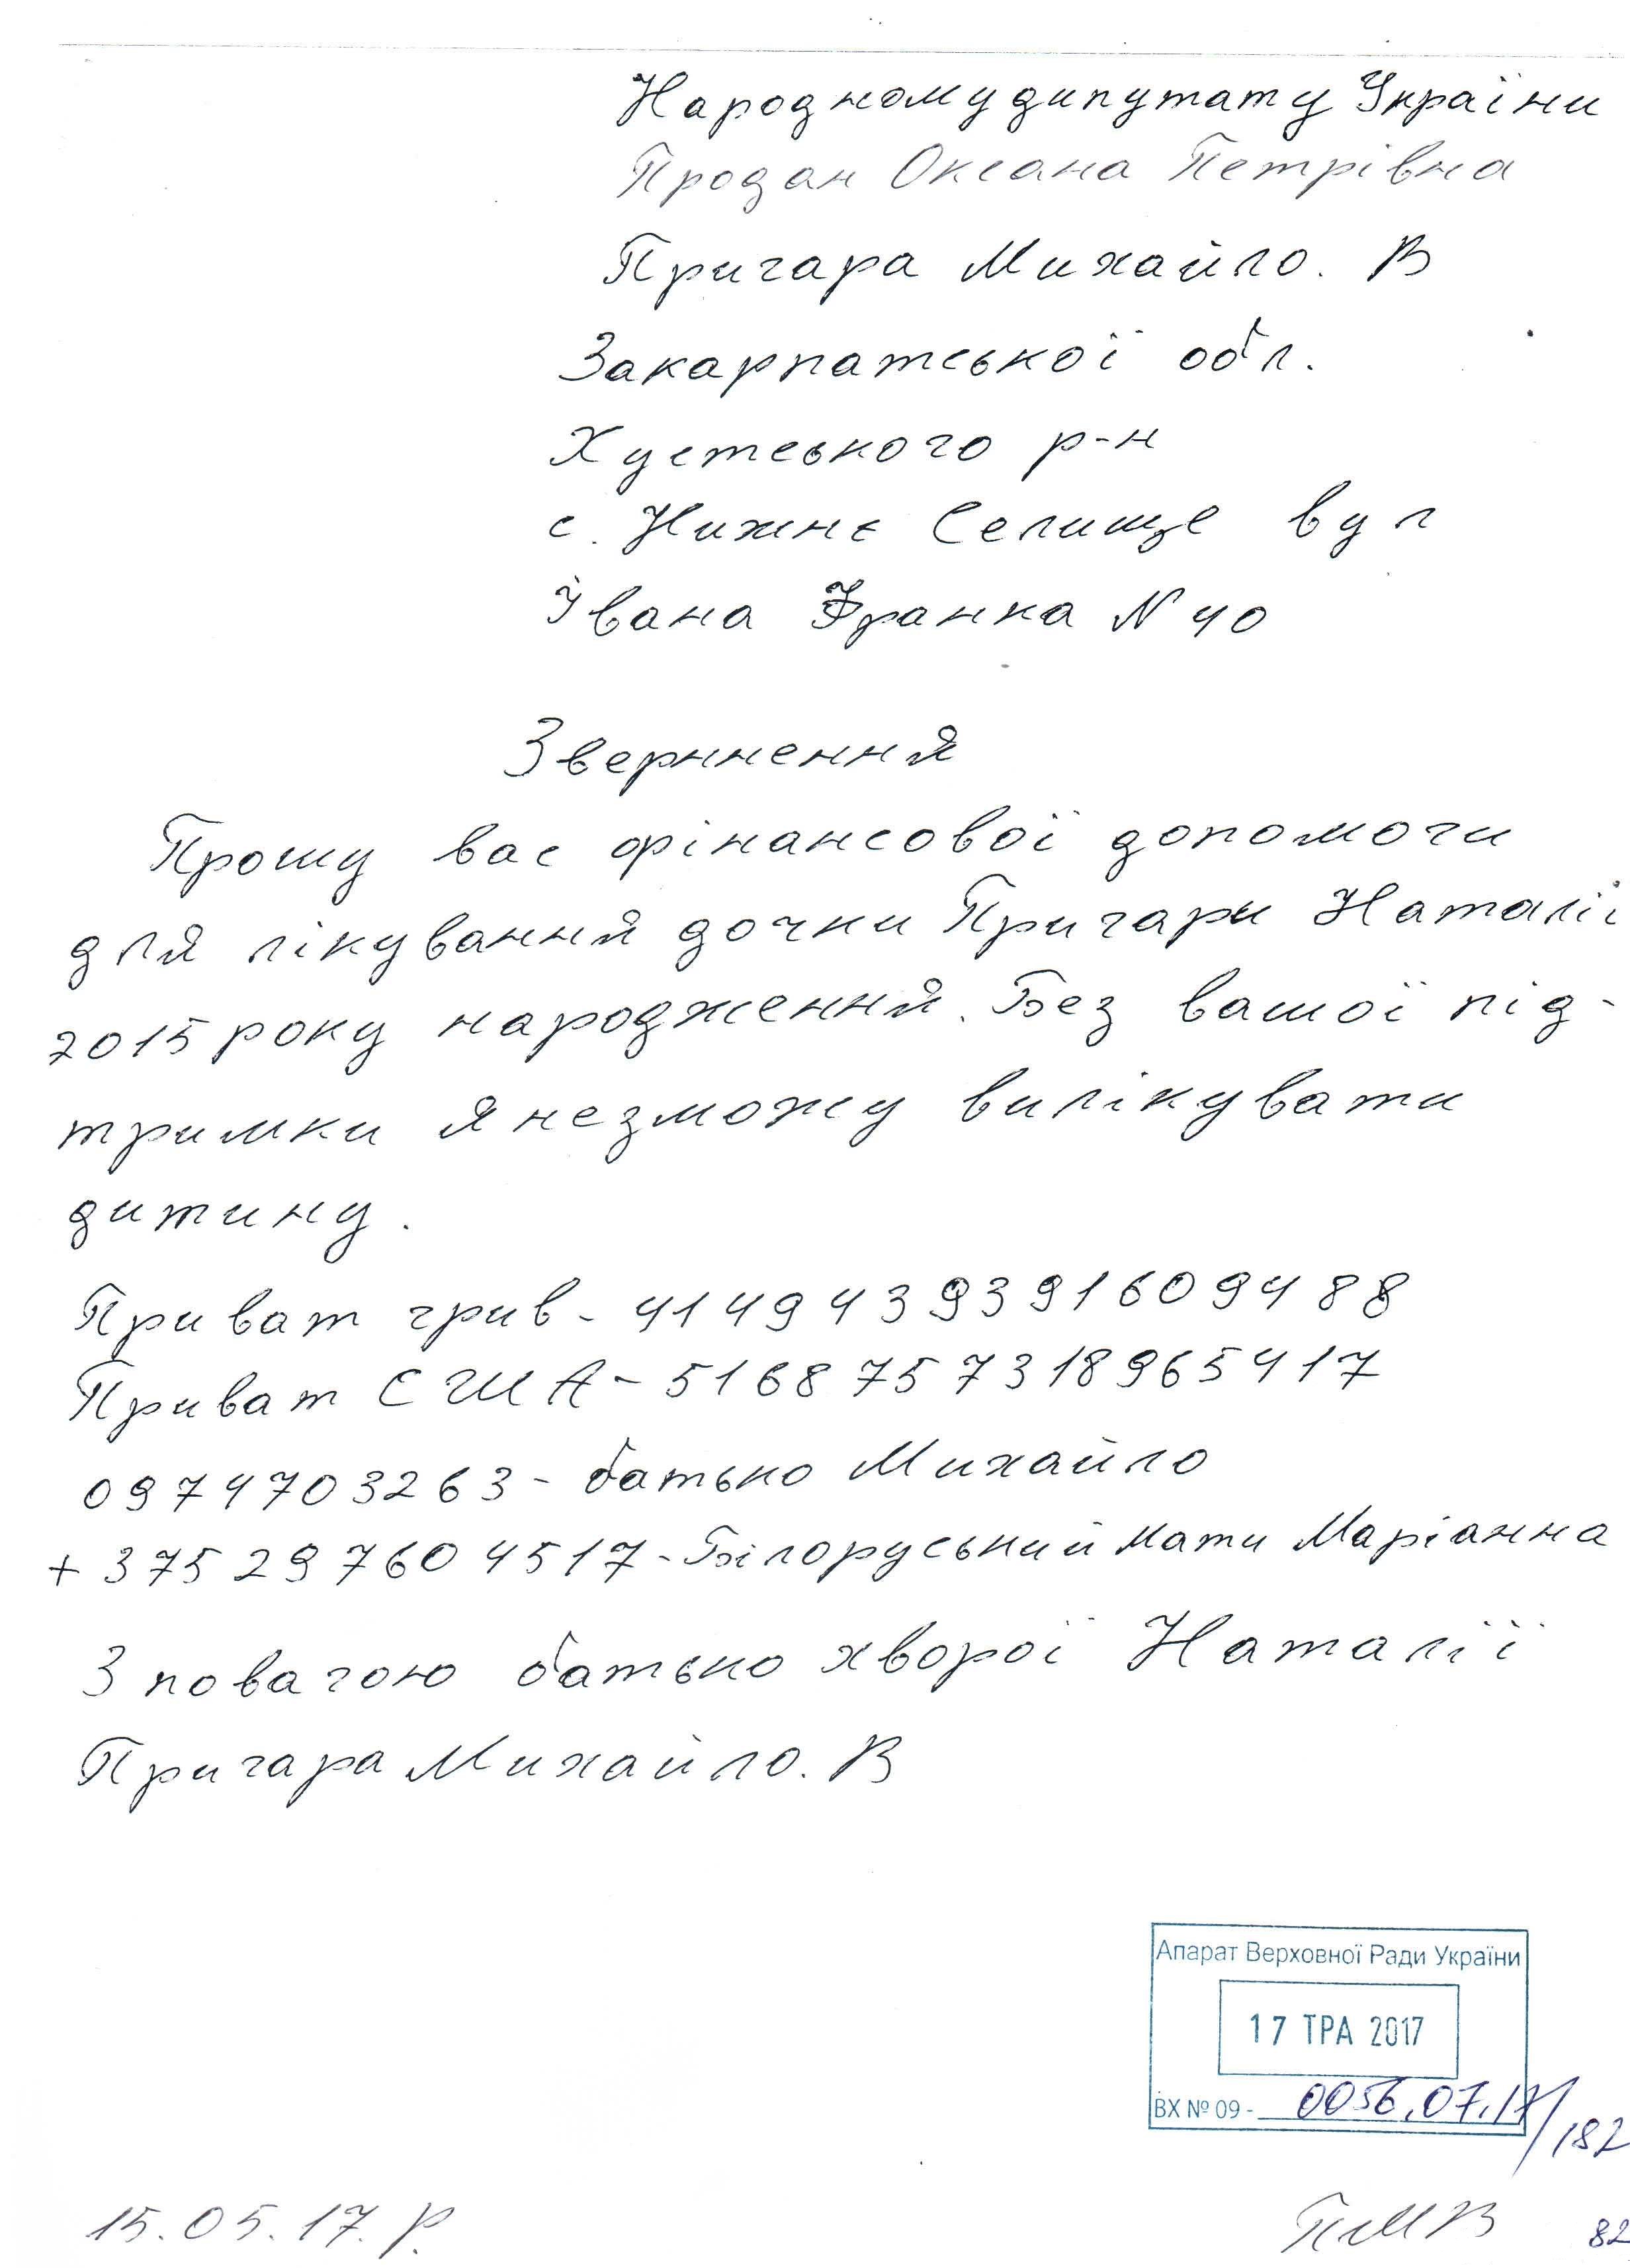 Народному дипутату України
Продан Оксана Петрівна
Пригара Михайло. В
Закарпатської обл.
Хустського р-н
с. Нижнє Селище вул
Івана Франка N 40
Зверннення
Прошу вас фінансової допомоги
для лікування дочки Пригари Наталії
2015 року народження. Без вашої під-
тримки я незможу вилікувати
дитину.
Приват грив - 4149439391609488
Приват США - 5168757318965417
0974703263 - батько Михайло
+375297604517 - Білоруський мати Маріанна
З повагою батько хворої Наталії
Пригара Михайло. В
Апарат Верховної Ради України
17 ТРА 2017
ВХ № 09 - 0056.07.17/182
15.05.17.р.
ПМВ
82